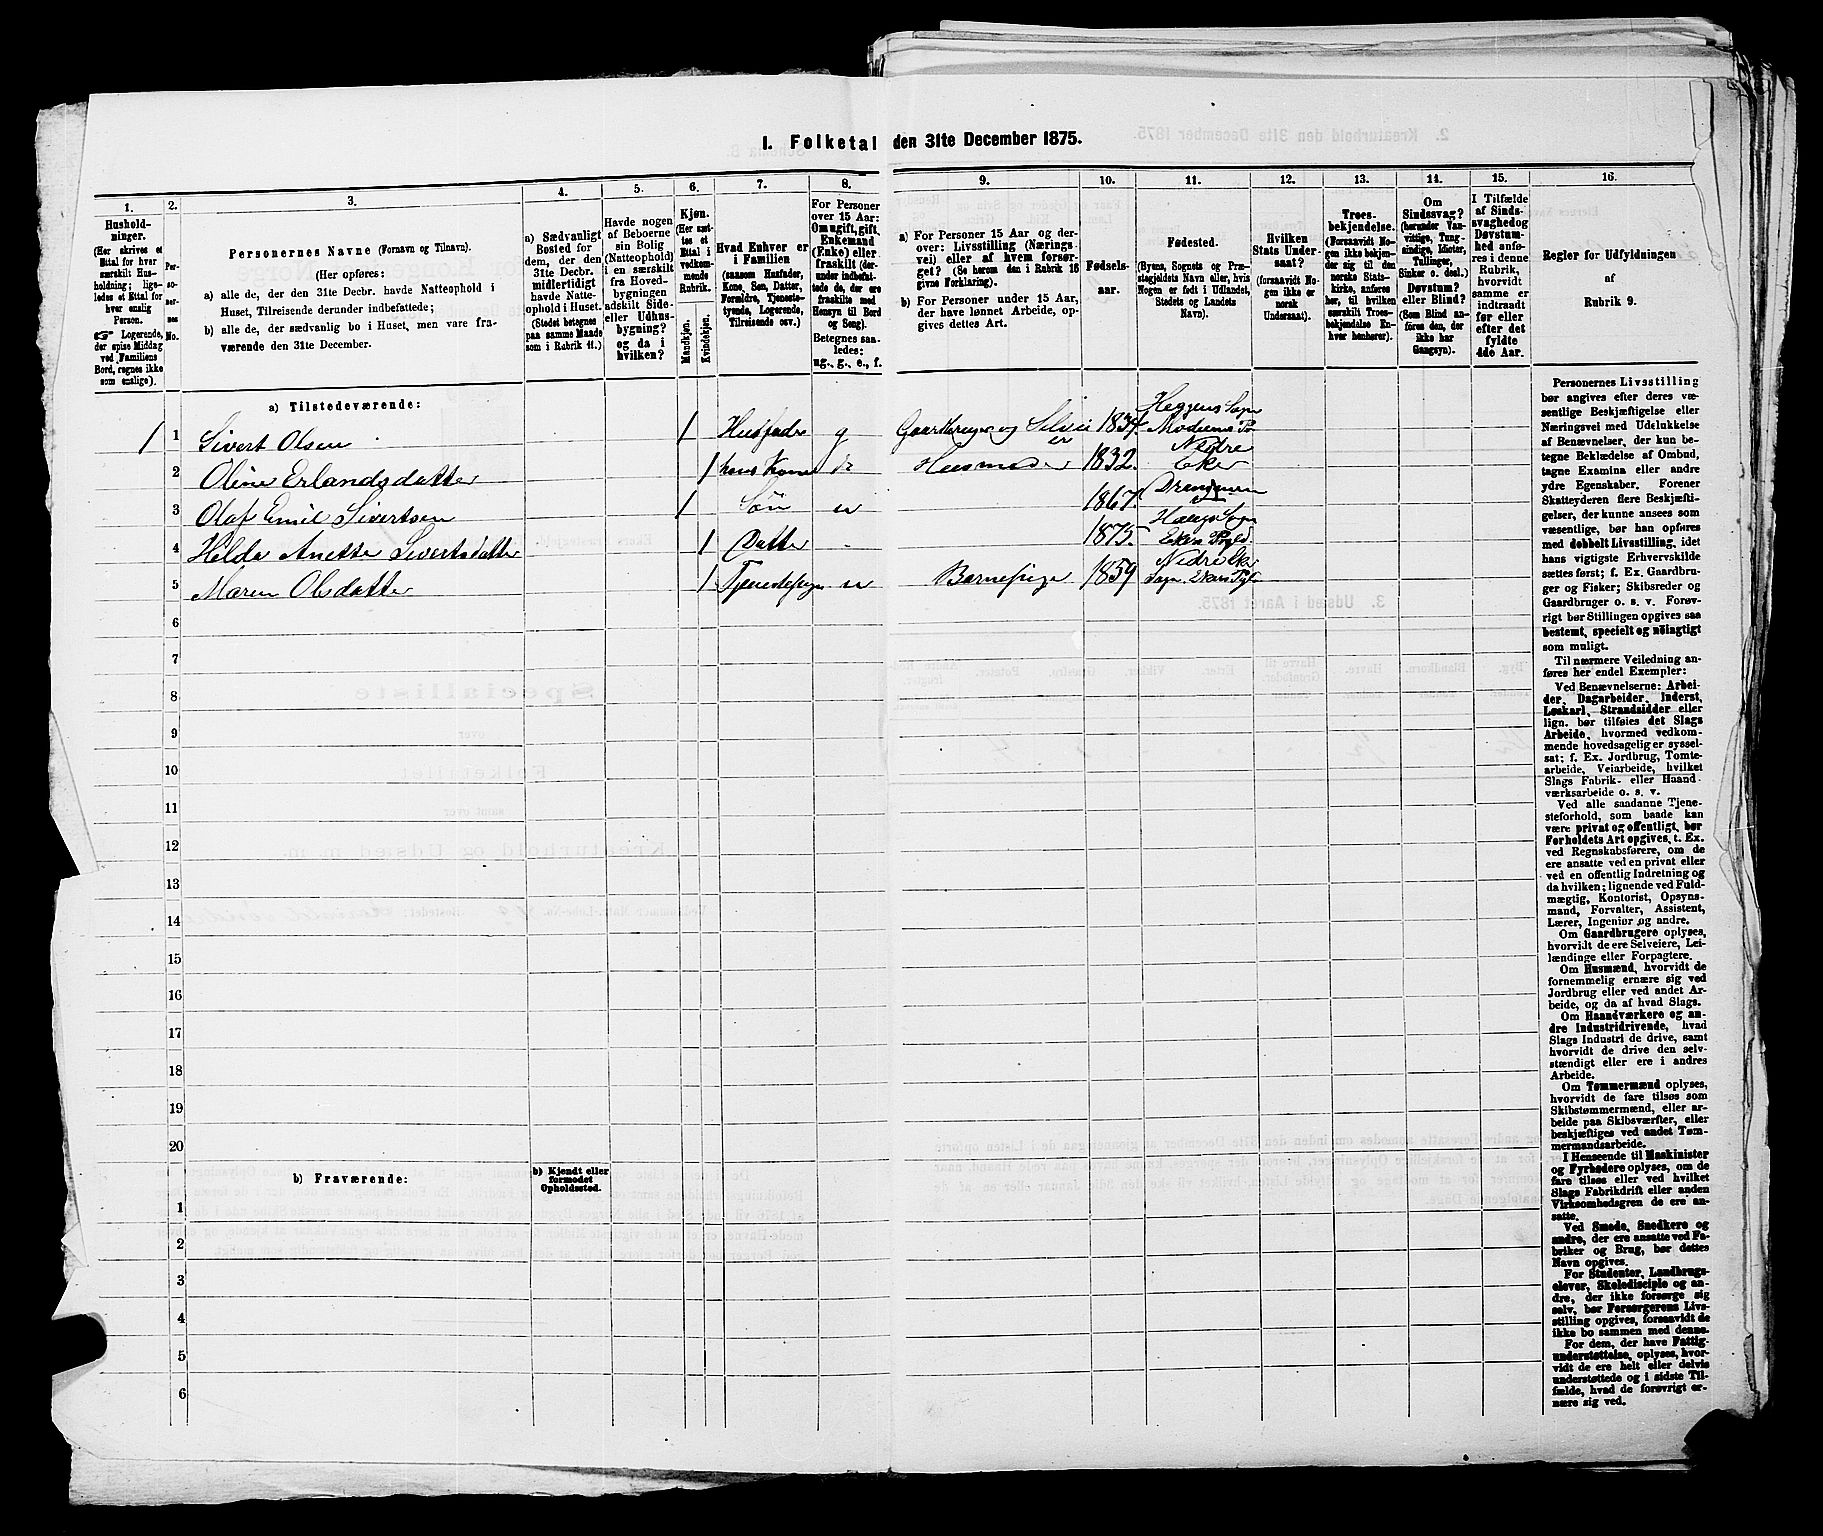 I. Folketal den 31te December 1875.
1.
Hushold-
ninger.
(Her skrives et
Ettal for hver
særskilt Hus-
holdning; lige-
ledes et Ettal for
hver enslig
Person.
Logerende,
der spise Middag
ved Familiens
Bord, regnes ikke
som enslige).
2.
Per-
so-
ner-
nes
No.
3.
Personernes Navne (Fornavn og Tilnavn).
(Her opføres:
a) alle de, der den 31te Decbr. havde Natteophold i
Huset, Tilreisende derunder indbefattede;
b) alle de, der sædvanlig bo i Huset, men vare fra-
værende den 31te December.
4.
a) Sædvanligt
Bosted for
dem, der den
31te Decbr.
midlertidigt
havde Natte-
ophold i Huset.
(Stedet betegnes
paa samme Maade
som i Rubrik 11.)
5.
Havde nogen
af Beboerne
sin Bolig
(Natteophold)
i en særskilt
fra Hoved-
bygningen
adskilt Side-
eller Udhus-
bygning?
og da i
hvilken?
6.
Kjøn.
(Her sæt-
tes et
Ettal i
vedkom-
mende
Rubrik.
Mandkjøn.
Kvindekjøn.
7.
Hvad Enhver er
i Familien
(saasom Husfader,
Kone, Søn, Datter,
Forældre, Tjeneste-
tyende, Logerende,
Tilreisende osv.)
8.
For Personer
over 15 Aar:
Om ugift, gift,
Enkemand
(Enke) eller
fraskilt (der-
under indbefat-
tede de, der ere
fraskilte med
Hensyn til Bord
og Seng).
Betegnes saa-
ledes:
ug., g., e., f.
9.
a) For Personer 15 Aar og der-
over: Livsstilling (Nærings-
vei) eller af hvem forsør-
get? (Se herom den i Rubrik 16
givne Forklaring).
b) For Personer under 15 Aar,
der have lønnet Arbeide, op-
gives dettes Art.
10.
Fødsels-
aar.
11.
Fødested.
(Byens, Sognets og Præ-
stegjeldets Navn eller, hvis
Nogen er født i Udlandet,
Stedets og Landets
Navn).
12.
Hvilken
Stats Under-
saat?
(forsaavidt No-
gen ikke er
norsk
Undersaat).
13.
Troes-
bekjendelse.
(Forsaavidt No-
gen ikke bekjen-
der sig til
den norske Stats-
kirke, anføres
her, til hvilken
særskilt Troes-
bekjendelse En-
hver henhører).
14.
Om
Sindssvag?
(herunder Van-
vittige, Tung-
sindige, Idioter,
Tullinger,
Sinker o. desl.)
Døvstum?
eller Blind?
(Som Blind an-
føres den, der
ikke har
Gangsyn).
15.
I Tilfælde
af Sinds-
svaghed og
Døvstum-
hed anfø-
res i denne
Rubrik,
hvorvidt
samme er
indtraadt
før eller
efter det
fyldte
4de Aar.
16.
Regler for Udfyldningen
af
Rubrik 9.
a) Tilstedeværende:
1 1 Sivert Olsen 1 Husfader g Gaardbruger og Selveier 1834. Heggens Sogn Modums Pr
2 Oline Erlandsdatter 1 hans Kone do Husmoder 1832. Nedre Eker
3 Olaf Emil Sivertsen 1 Søn u 1867. Drammen
4 Hilda Anette Sivertsdatter 1 Datter - 1875. Haugs Sogn Ekers Prgld
5 Maren Olsdatter 1 Tjenestepige u Barnepige 1859 Nedre Eker Sogn. Ekers Pgl
6
7
8
9
10
11
12
13
14
15
16
17
18
19
20
b) Fraværende:
b) Kjendt eller
formodet
Opholdssted.
1
2
3
4
5
6
Personernes Livsstilling
bør angives efter deres væ-
sentlige Beskjæftigelse eller
Næringsvei med Udelukkelse
af Benævnelser, der kun be-
tegne Beklædelse af Ombud,
tagne Examina eller andre
ydre Egenskaber. Forener
Skatteyderen flere Beskjæfti-
gelser, der kunne ansees som
væsentlige, bør han opføres
med dobbelt Livsstilling, idet
hans vigtigste Erhvervskilde
sættes først; f. Ex. Gaardbru-
ger og Fisker; Skibsreder og
Gaardbruger o. s. v. Forøv-
rigt bør Stillingen opgives saa
bestemt, specielt og nøiagtigt
som muligt.
Til nærmere Veiledning an-
føres her endel Exempler:
Ved Benævnelserne: Arbei-
der, Dagarbeider, Inderst,
Løskarl, Strandsidder eller
lign. bør tilføies det Slags
Arbeide, hvormed vedkom-
mende hovedsagelig er syssel-
sat; f. Ex. Jordbrug, Tomte-
arbeide, Veiarbeide, hvilket
Slags Fabrik- eller Haand-
værksarbeide o. s. v.
Ved alle saadanne Tjene-
steforhold, som baade kan
være privat og offentligt, bør
Forholdets Art opgives, t. Ex.
ved Regnskabsførere, om de
ere ansatte ved en privat eller
ved en offentlig Indretning og
da hvilken; lignende ved Fuld-
mægtig, Kontorist, Opsyns-
mand, Forvalter, Assistent,
Lærer, Ingeniør og andre.
Om Gaardbrugere oplyses,
hvorvidt de ere Selveiere, Lei-
lændinge eller Forpagtere.
Om Husmænd, hvorvidt de
fornemmelig ernære sig ved
Jordbrug eller ved andet Ar-
beide, og da af hvad Slags.
Om Haandværkere og an-
dre Industridrivende, hvad
Slags Industri de drive, samt
hvorvidt de drive den selv-
stændigt eller ere i andres
Arbeide.
Om Tømmermænd oplyses,
hvorvidt de fare tilsøs som
Skibstømmermænd, eller ar-
beide paa Skibsværfter, eller
beskjæftiges ved andet Tøm-
mermandsarbeide.
I Henseende til Maskinister
og Fyrbødere oplyses, om de
fare tilsøs eller ved hvilket
Slags Fabrikdrift eller anden
Virksomhedsgren de ere an-
satte.
Ved Smede, Snedkere og
andre, der ere ansatte ved Fa-
briker og Brug, bør dettes
Navn opgives.
For Studenter, Landbrugs-
elever, Skoledisciple og an-
dre, der ikke forsørge sig
selv, bør Forsørgerens Livs-
stilling opgives, forsaavidt de
ikke bo sammen med denne.
For dem, der have Fattig-
understøttelse, oplyses, hvor-
vidt de ere helt eller delvis
understøttede og i sidste Til-
fælde, hvad de forøvrigt er-
nære sig ved.